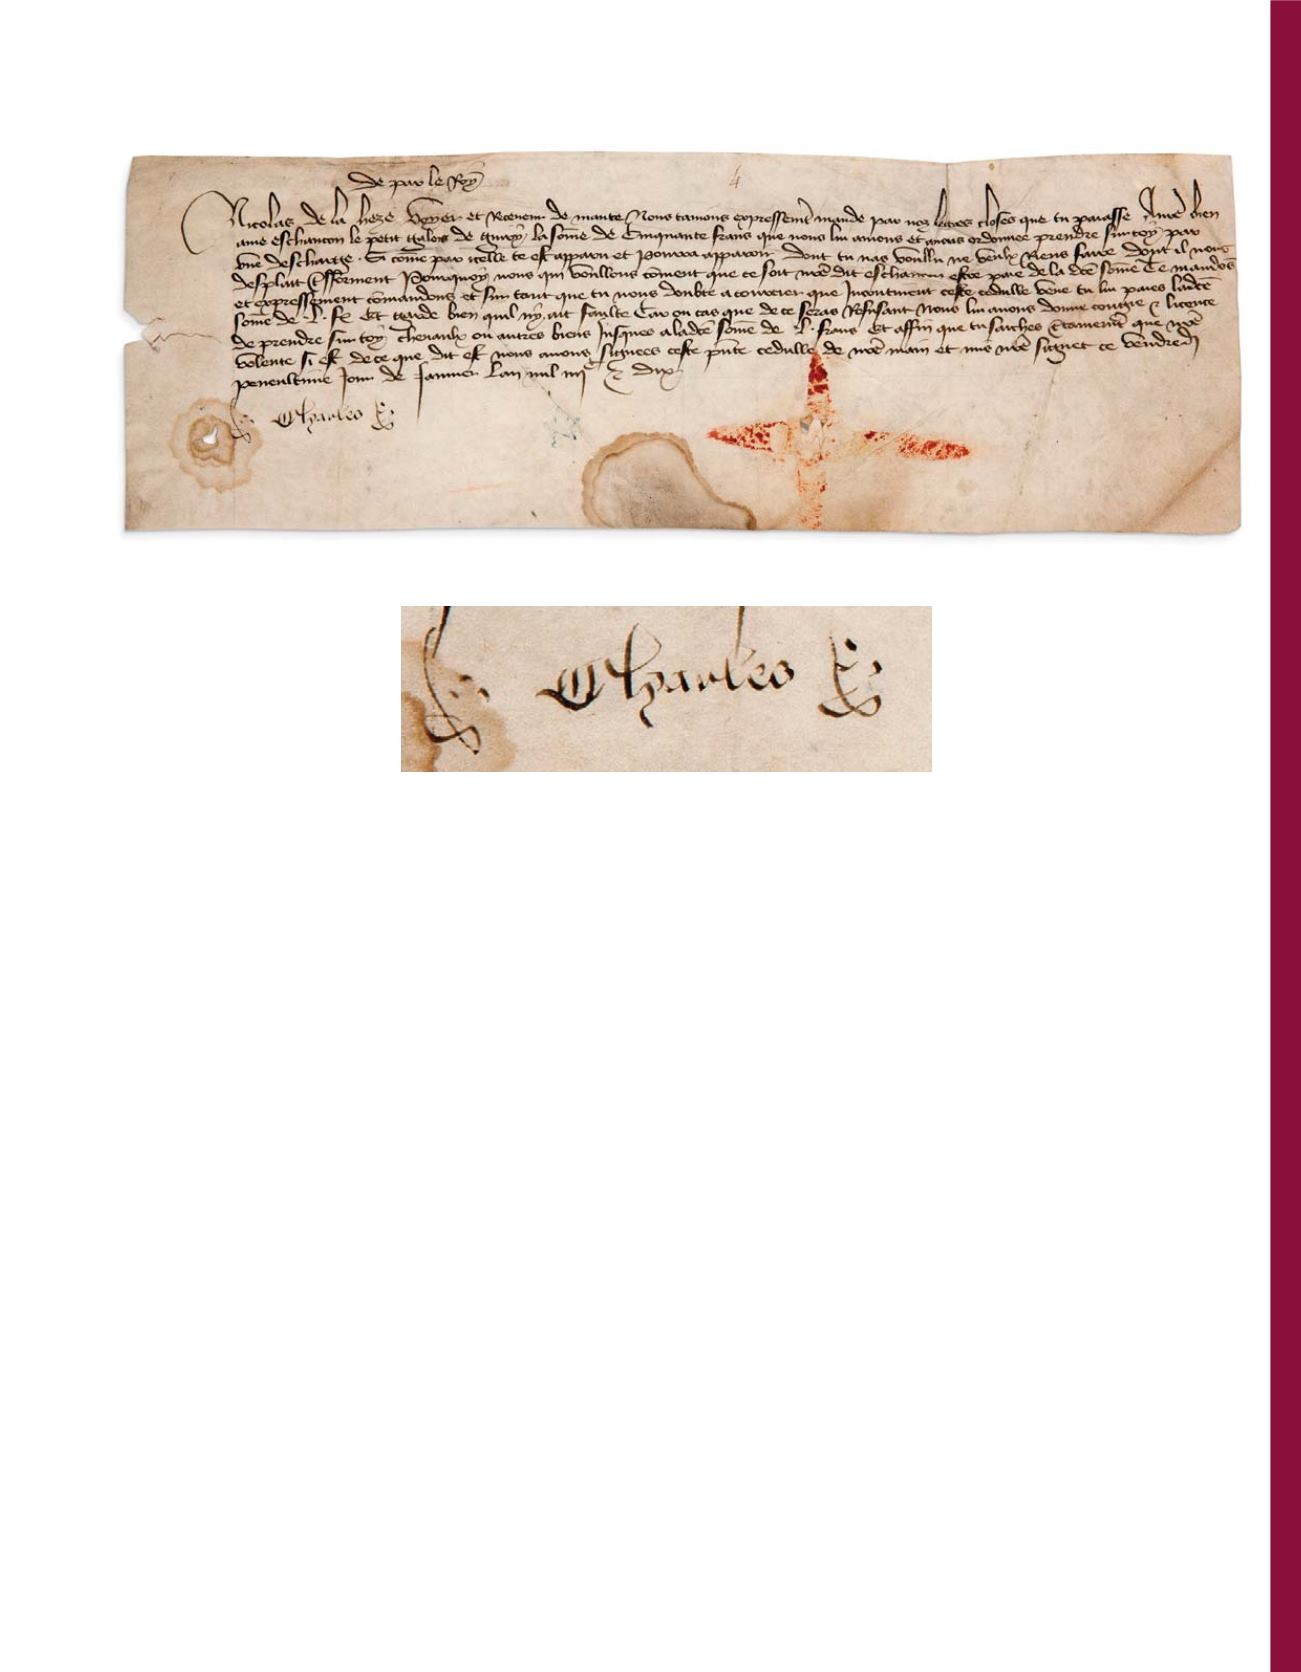 De par le Roy
4
Nicolas de la heze voyer et Receveur de mante Nous tavons expressemt mande par noz lettres closes que tu paiasse A nre bien
ame eschancon le petit galois de la some de Cinquante frans que nous lui avions et avons ordonnee prendre sur toy par
vne descharge. Si come par icelle te est apparu et pourra apparoir Dont tu nas voullu ne veulx Riens faire dont il nous
desplait fforment Pourquoy nous qui voullons coment que ce soit nre dit eschancon estre paie de la dce some Te mandons
et expressement comandons et sur tant que tu nous doubte a courcier que Incontinent ceste cedulle veue tu lui paies ladce
some de .L. fr. Et garde bien quil ny ait faulte Car ou cas que de ce seras Refusant Nous lui avons donne congie & licence
de prendre sur toy chevaulx ou autres biens Jusques a ladce some de .L. frans Et affin que tu saiches que nre
volente si est de ce que dit est nous avons signees ceste pnte cedulle de nre main et mis nre signet ce vendredi
penultime Jour de Janvier Lan mil iiijc & dix
Charles
Charles